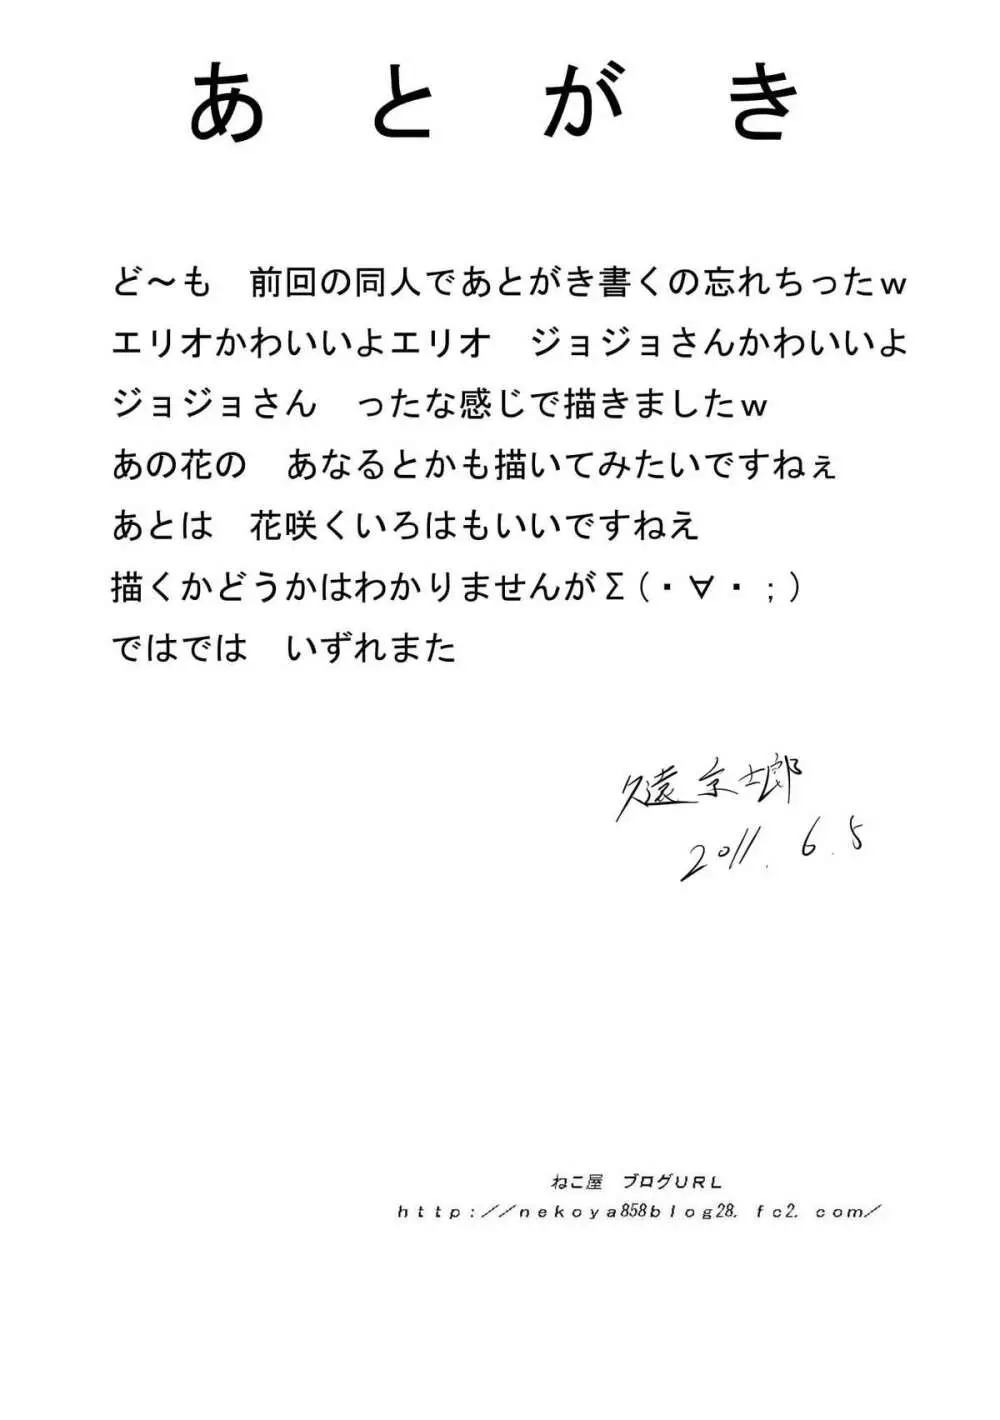 あとがき
ど～も　前回の同人であとがき書くの忘れちったｗ
エリオかわいいよエリオ　ジョジョさんかわいいよ
ジョジョさん　ったな感じで描きましたｗ
あの花の　あなるとかも描いてみたいですねぇ
あとは　花咲くいろはもいいですねえ
描くかどうかはわかりませんがΣ(・∀・；)
ではでは　いずれまた
久遠 京士郎
2011. 6. 5
ねこ屋　ブログＵＲＬ
ｈｔｔｐ：／／ｎｅｋｏｙａ858ｂｌｏｇ28. ｆｃ2. ｃｏｍ／